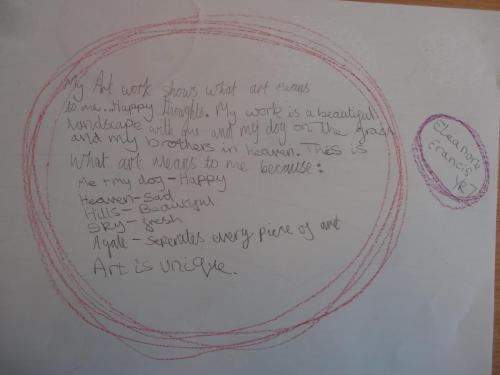 My Art work shows what art means
to me...Happy thoughts. My work is a beautiful
landscape with me and my dog on the grass
and my brothers in heaven. This is
what art means to me because:
Me + my dog - Happy
Heaven - Sad
Hills - Beautyful
Sky - fresh
Agate - seperates every piece of art
Art is unique.
Eleanore
Francis
YR7